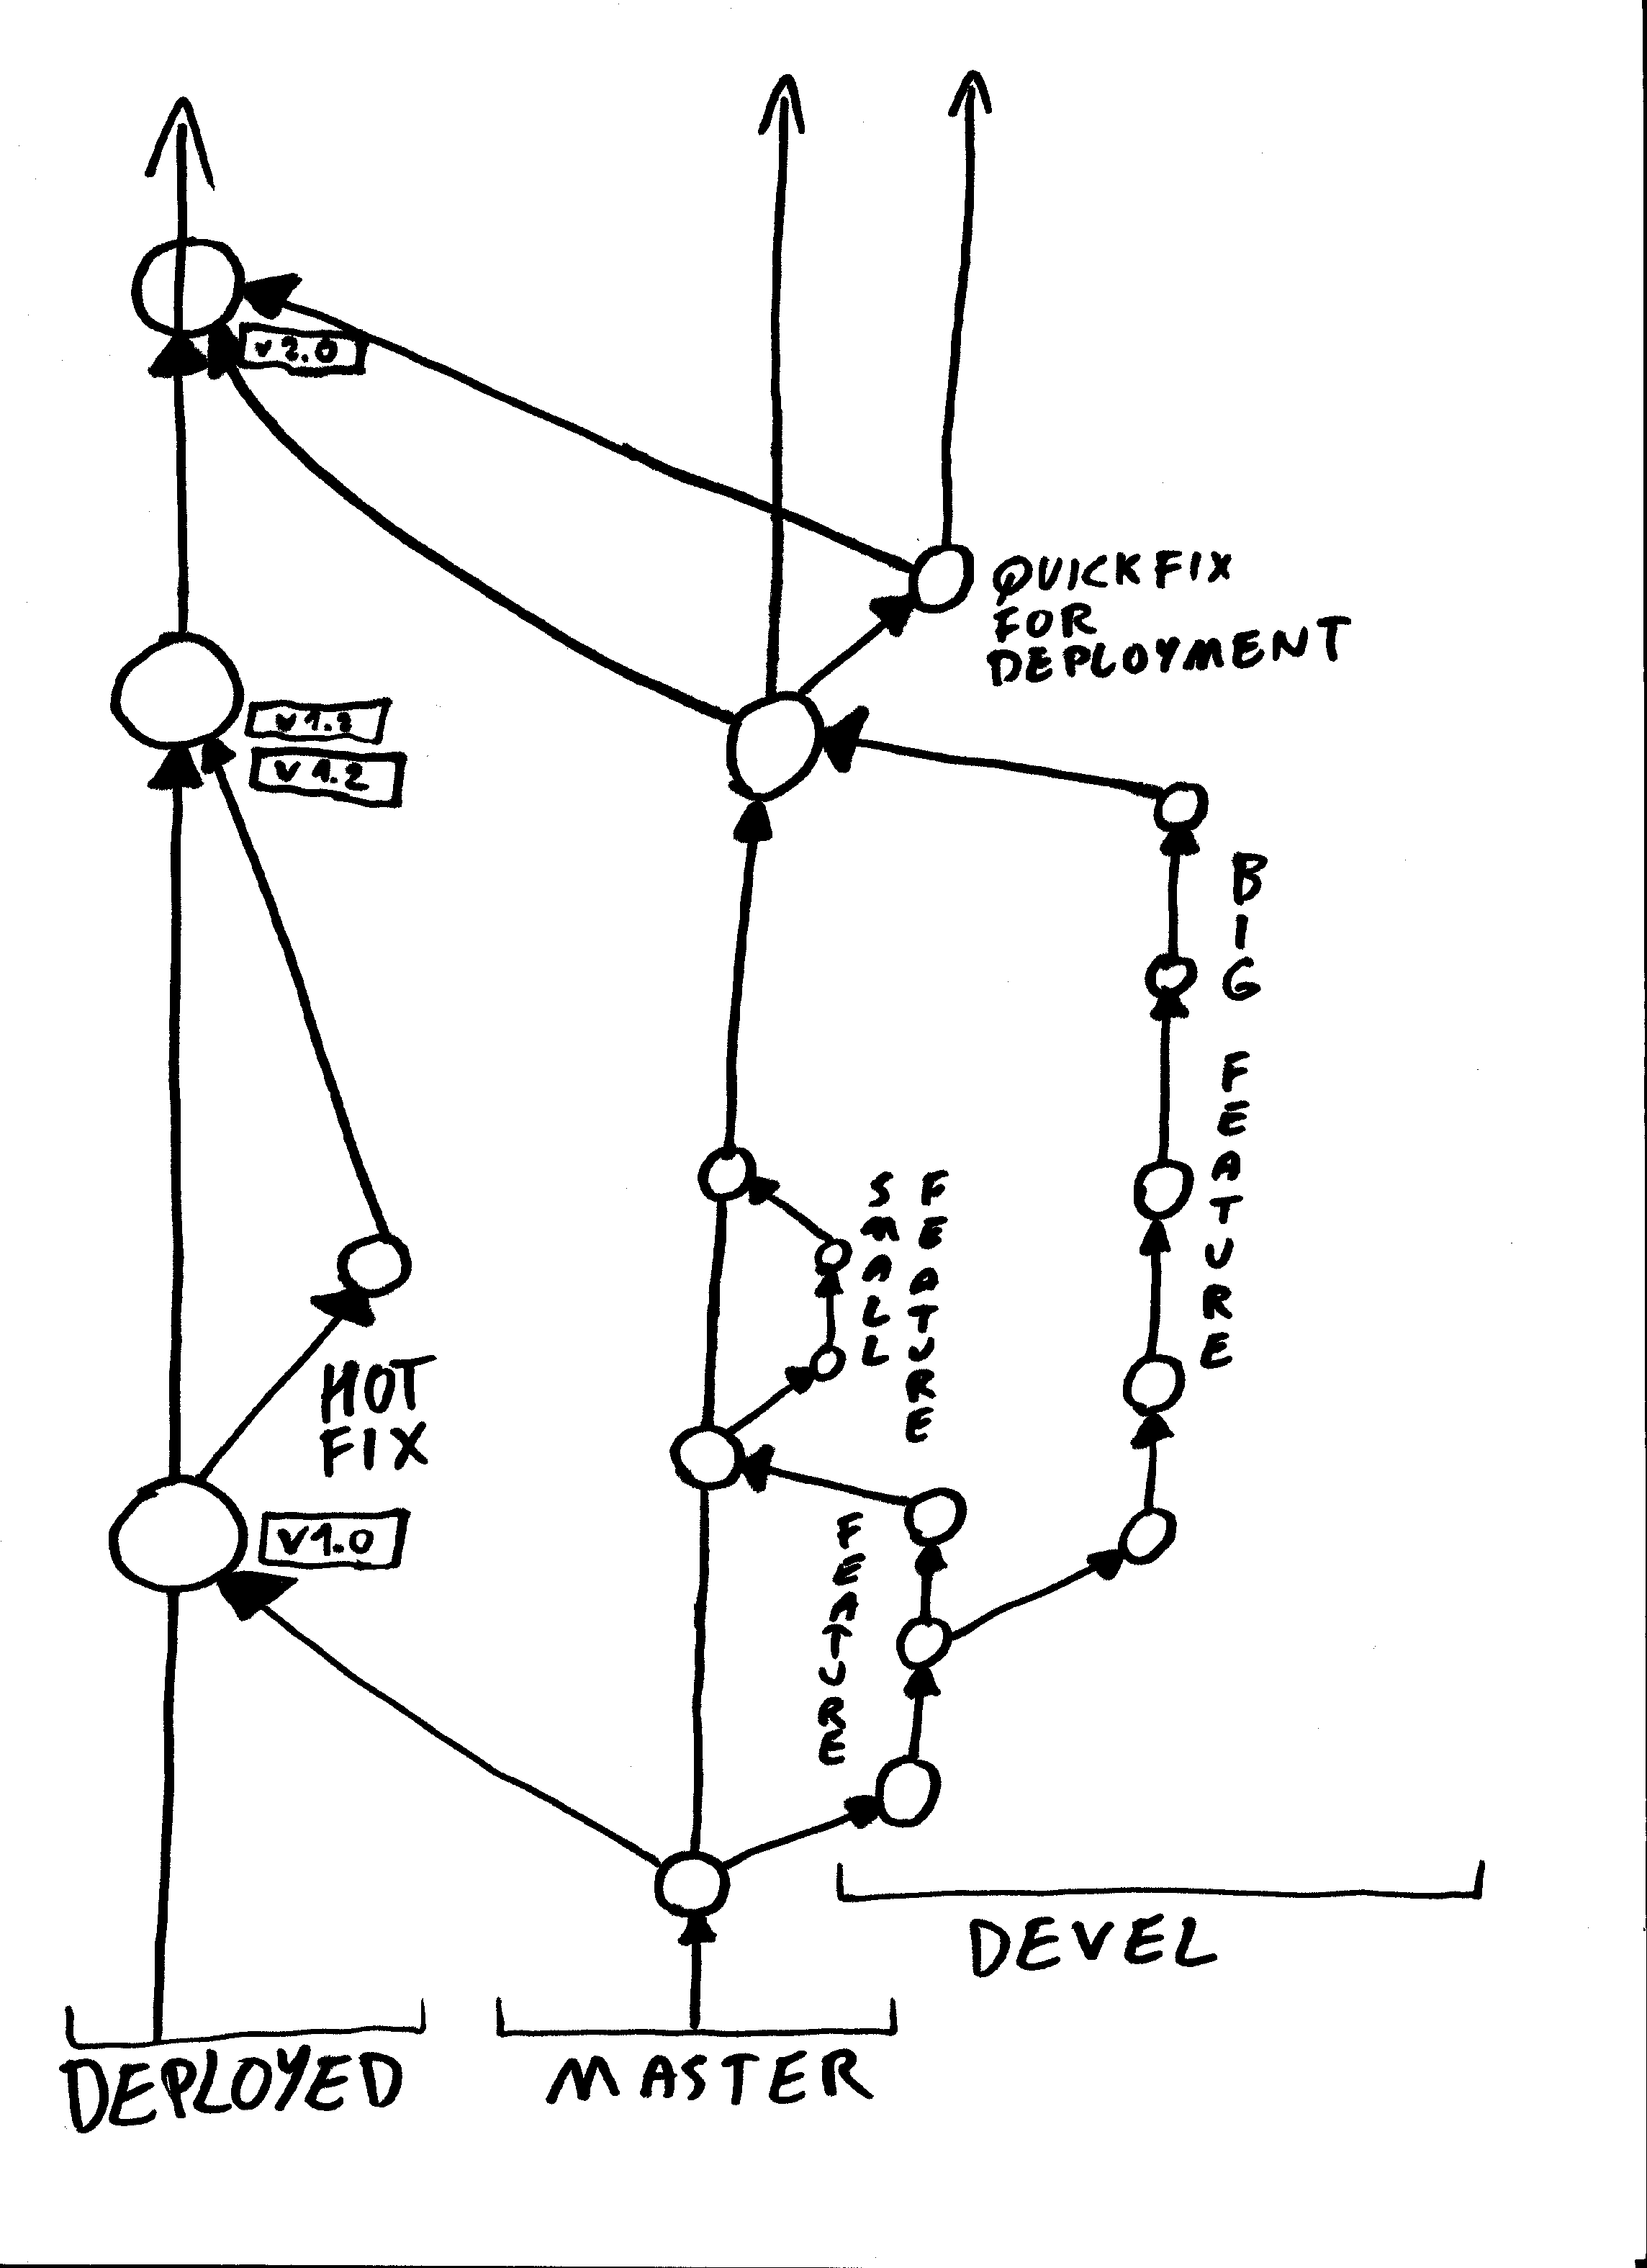 v 2.0
QUICKFIX
FOR
DEPLOYMENT
v 1.2
BIG FEATURE
SMALL
FEATURE
HOT
FIX
v1.0
FEATURE
DEVEL
DEPLOYED
MASTER